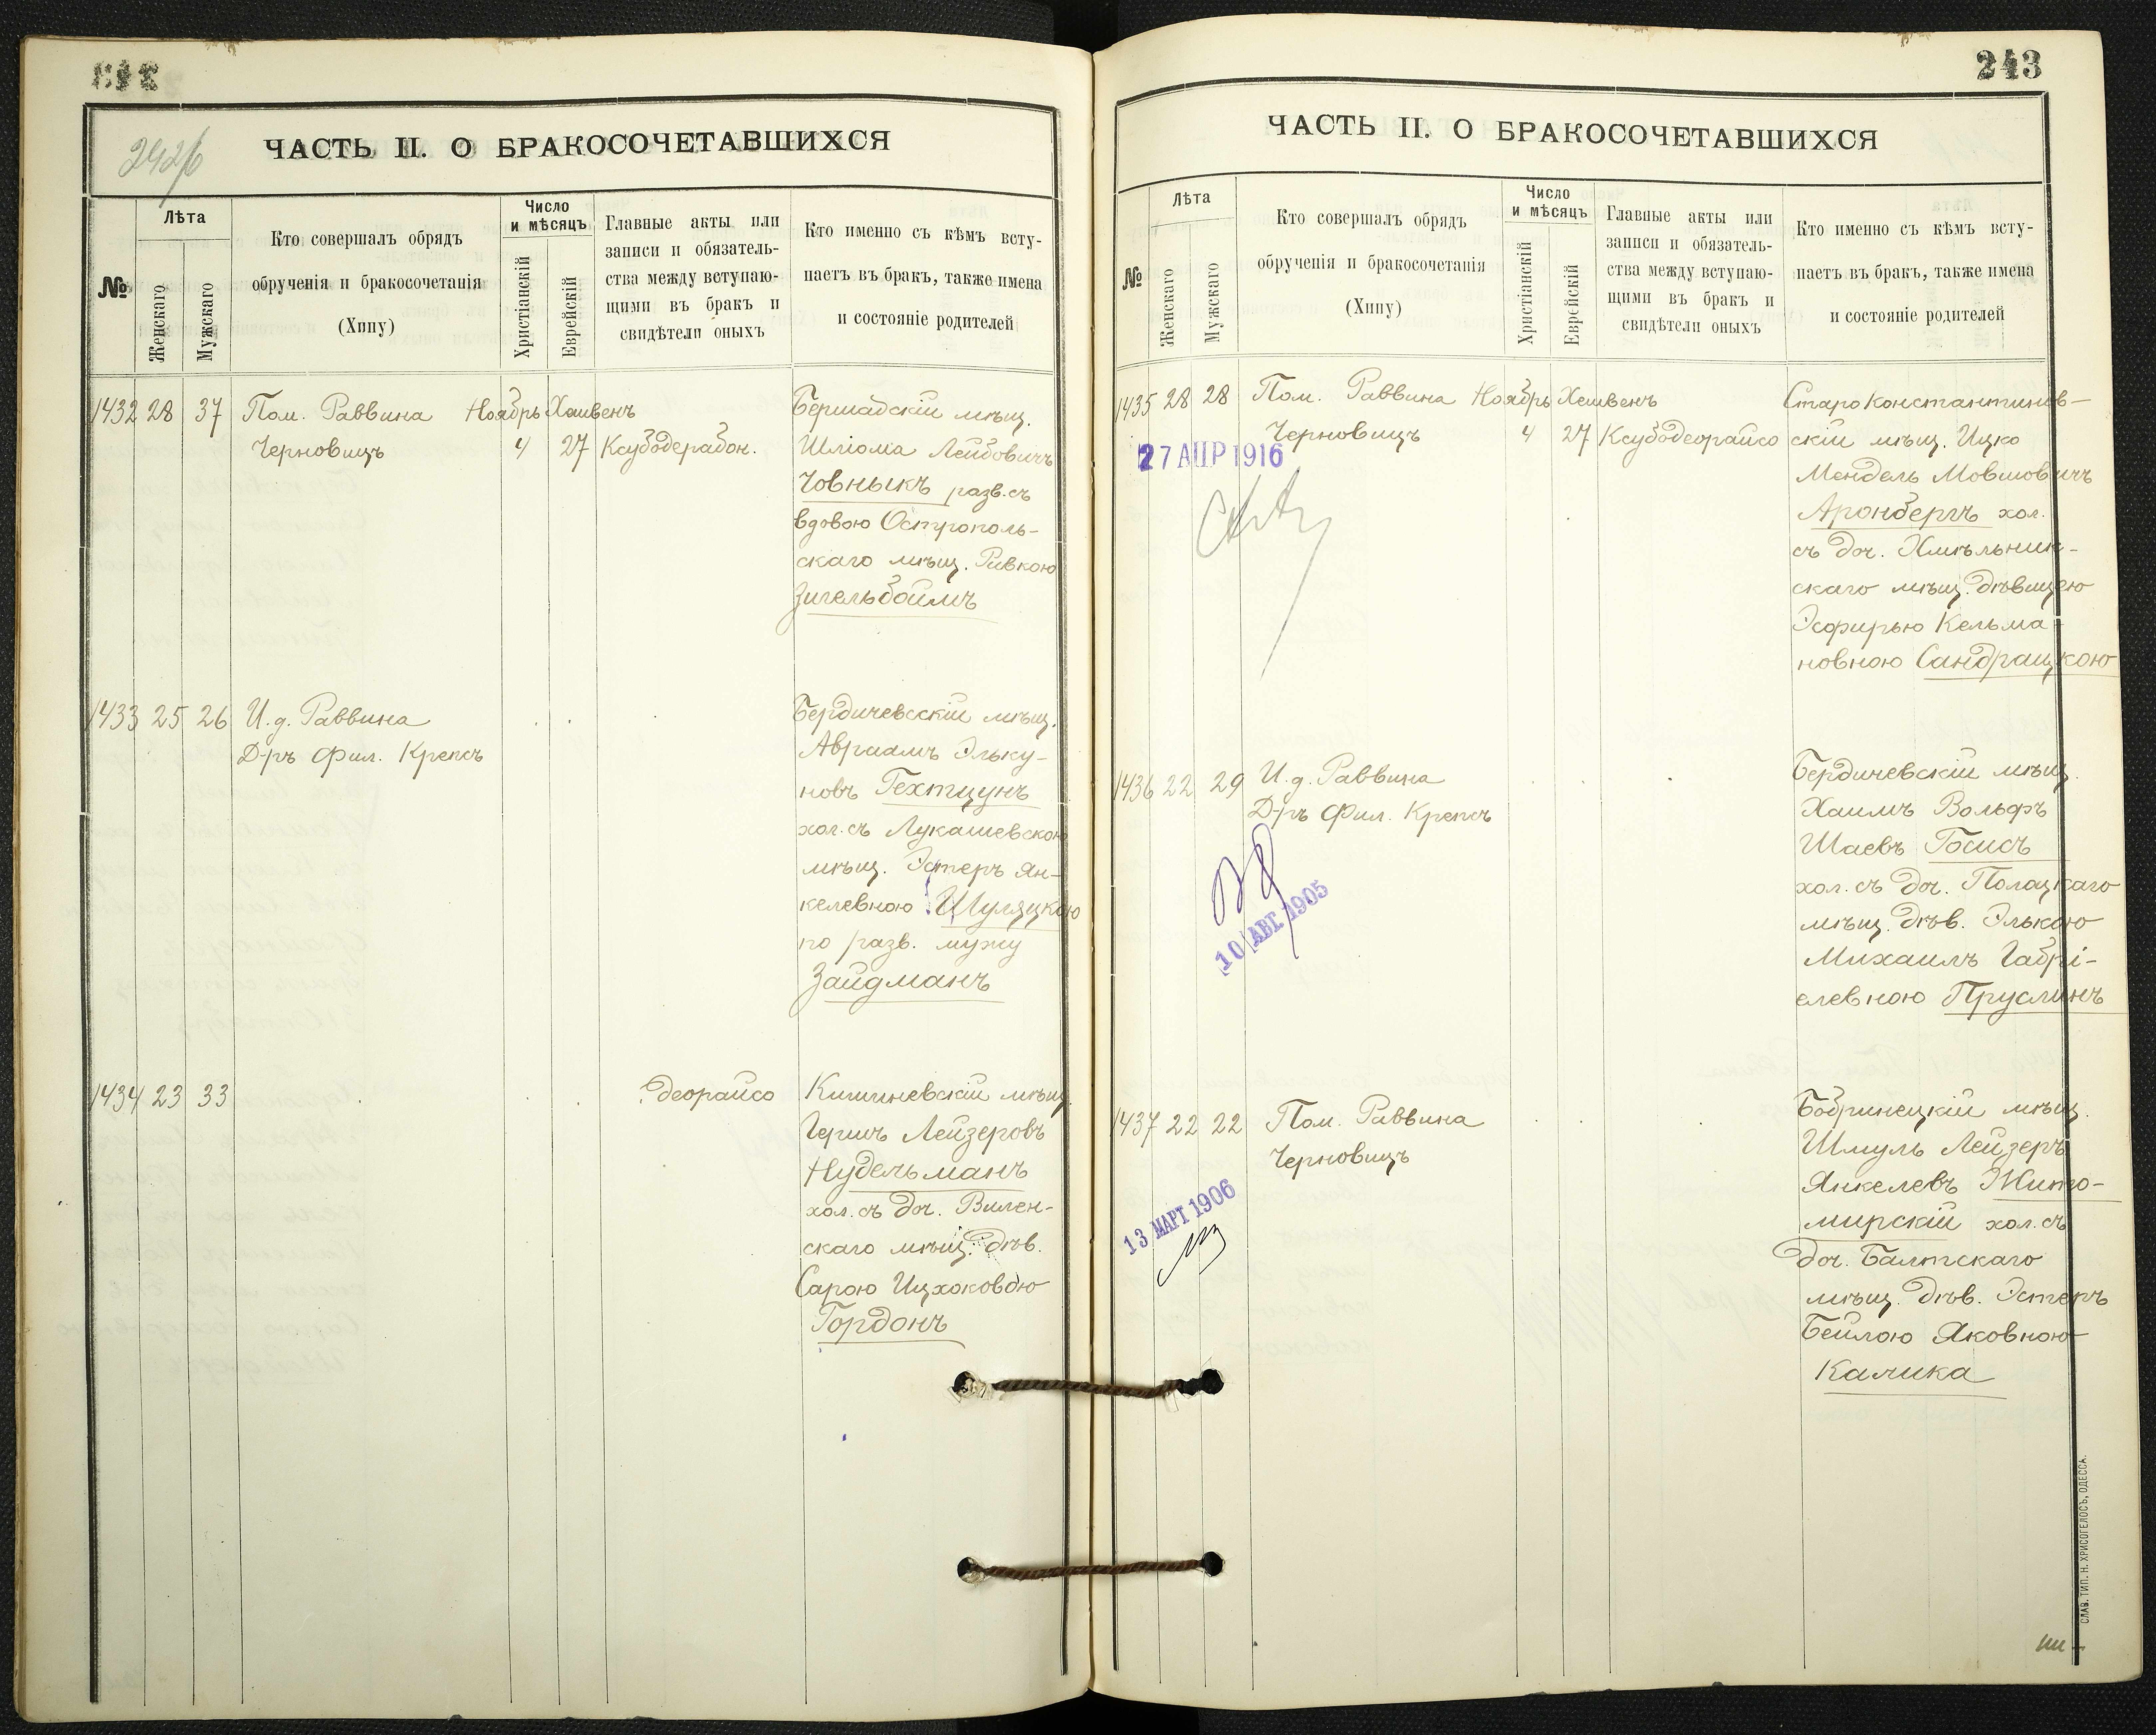 242б
ЧАСТЬ II. О БРАКОСОЧЕТАВШИХСЯ
№
Лѣта
Женскаго
Мужскаго
Кто совершалъ обрядъ
обрученія и бракосочетанія
(Хипу)
Число
и мѣсяцъ
Христіанскій
Еврейскій
Главные акты или
записи и обязатель-
ства между вступаю-
щими въ бракъ и
свидѣтели оныхъ
Кто именно съ кѣмъ всту-
паетъ въ бракъ, также имена
и состояніе родителей
1432 28 37 Пом. Раввина Ноябрь Хешвенъ
Черновицъ 4 27 Ксубодерабон.
Бершадскій мѣщ.
Шліома Лейбовичъ
Човныкъ разв. съ
вдовою Острополь-
скаго мѣщ. Ривкою
Зигельбоймъ
1433 25 26 И. д. Раввина
Д-ръ Фил. Крепсъ
Бердичевскій мѣщ.
Авраамъ Эльку-
новъ Гехтцунъ
хол. съ Лукашевскою
мѣщ. Эстеръ Ян-
келевною Шуляцкою
по разв. мужу
Зайдманъ
1434 23 33 деорайсо
Кишиневскій мѣщ.
Гершъ Лейзеровъ
Нудельманъ
хол. съ доч. Вилен-
скаго мѣщ. дѣв.
Сарою Ицхоковою
Гордонъ
243
ЧАСТЬ II. О БРАКОСОЧЕТАВШИХСЯ
№
Лѣта
Женскаго
Мужскаго
Кто совершалъ обрядъ
обрученія и бракосочетанія
(Хипу)
Число
и мѣсяцъ
Христіанскій
Еврейскій
Главные акты или
записи и обязатель-
ства между вступаю-
щими въ бракъ и
свидѣтели оныхъ
Кто именно съ кѣмъ всту-
паетъ въ бракъ, также имена
и состояніе родителей
1435 28 28 Пом. Раввина Ноябрь Хешвенъ
Черновицъ 4 27 Ксубодеорайсо
27 АПР 1916
Староконстантинов-
скій мѣщ. Ицко
Мендель Мовшовичъ
Аронбергъ хол.
съ доч. Хмѣльник-
скаго мѣщ. дѣвицею
Эсфирью Кельма-
новною Сандрацкою
1436 22 29 И. д. Раввина
Д-ръ Фил. Крепсъ
10 АВГ 1905
Бердичевскій мѣщ.
Хаимъ Вольфъ
Шаевъ Госисъ
хол. съ доч. Полоцкаго
мѣщ. дѣв. Элькою
Михаилъ Габрі-
елевною Пруслинъ
1437 22 22 Пом. Раввина
Черновицъ
13 МАРТ 1906
Бобринецкій мѣщ.
Шмуль Лейзеръ
Янкелевъ Жито-
мирскій хол. съ
доч. Балтскаго
мѣщ. дѣв. Эстеръ
Бейлою Яковною
Калика
СЛАВ. ТИП. Н. ХРИСОГЕЛОСЪ, ОДЕССА.